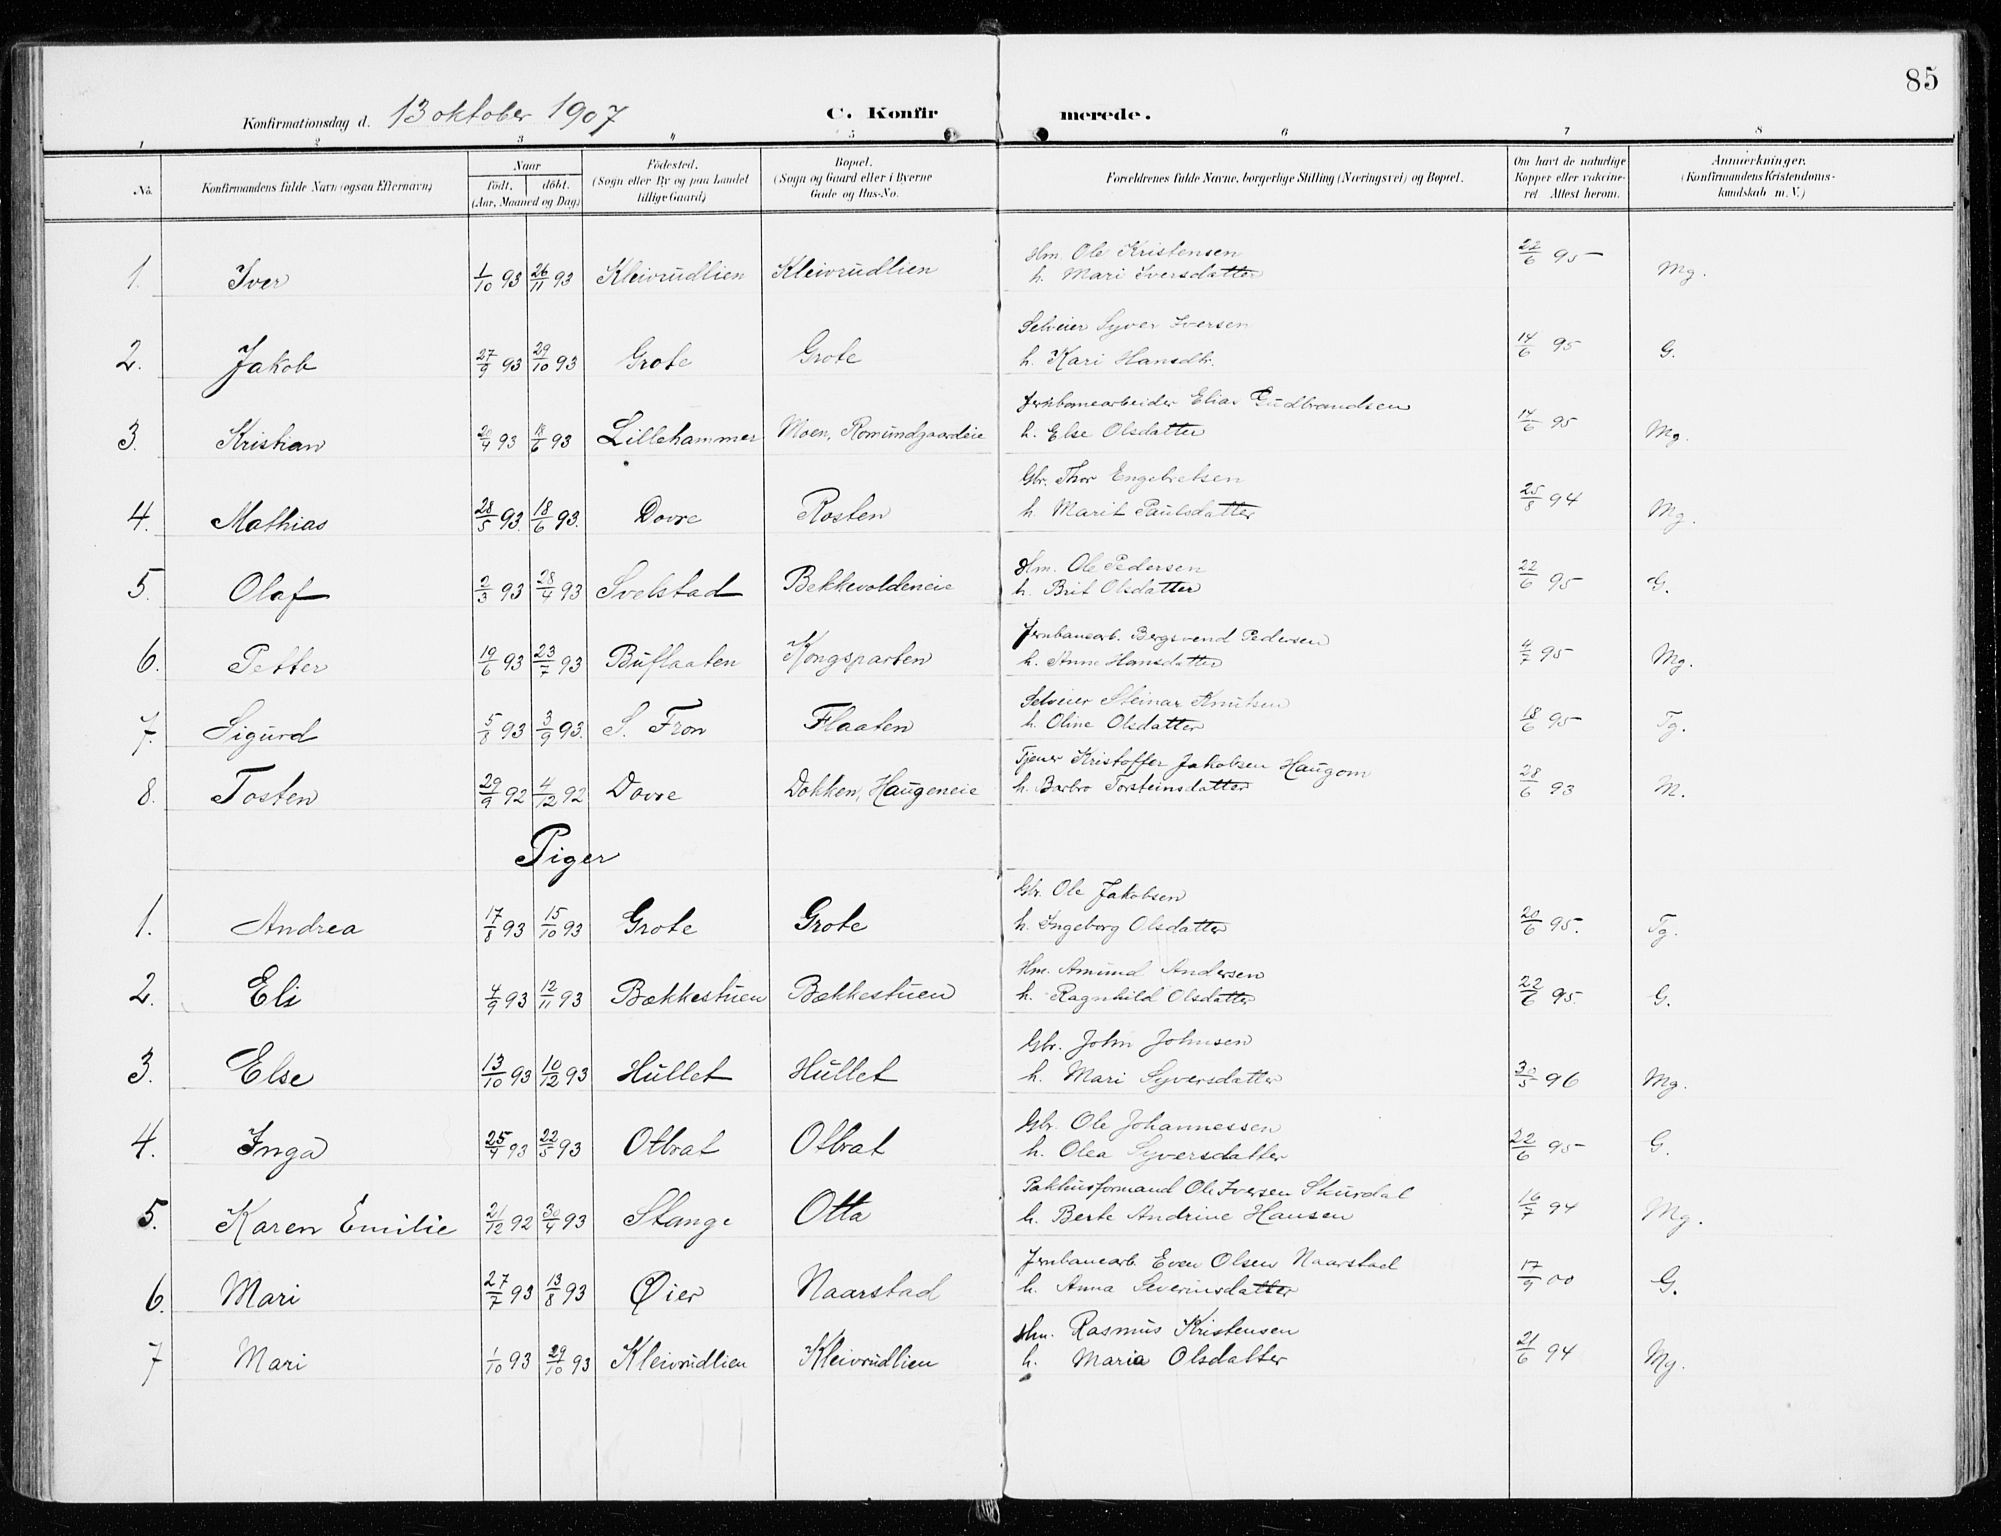 85
Konfirmationsdag d. 13 oktober 1907 C. Konfirmerede.
1 2 3 4 5 6 7 8
No. Konfirmandens fulde Navn (ogsaa Efternavn)
Naar
födt. döbt.
(Aar, Maaned og Dag)
Födested.
(Sogn eller By og paa Landet
tillige Gaard)
Bopæl.
(Sogn og Gaard eller i Byerne
Gade og Hus-No.
Forældrenes fulde Navne, borgerlige Stilling (Næringsvei) og Bopæl.
Om havt de naturlige
Kopper eller vakcine-
ret Attest herom.
Anmærkninger.
(Konfirmandens Kristendoms-
kundskab m. V.)
1. Iver 1/10 93 26/11 93 Kleivrudlien Kleivrudlien Hm. Ole Kristensen 22/6 95 Mg.
h. Mari Iversdatter
2. Jakob 27/9 93 29/10 93 Grote Grote Selveier Syver Iversen 14/6 95 G.
h. Kari Hansdtr.
3. Kristian 20/4 93 18/6 93 Lillehammer Moen, Romundgaardeie Jernbanearbeider Elias Gudbrandsen 14/6 95 Mg.
h. Else Olsdatter
4. Mathias 28/5 93. 18/6 93. Dovre Rosten Gbr. Thor Engebretsen 25/8 94 Mg.
h. Marit Paulsdatter
5. Olaf 2/3 93 28/4 93 Svelstad Bekkevoldeneie Hm. Ole Pedersen 22/6 95 G.
h. Brit Olsdatter
6. Petter 19/6 93 23/7 93 Buflaaten Kongsparten Jernbanearb. Bergsvend Pedersen 4/7 95 Mg.
h. Anne Hansdatter
7. Sigurd 5/8 93 3/9 93. S. Fron Flaaten Selveier Steinar Knutsen 18/6 95 Tg.
h. Oline Olsdatter
8. Tosten 29/9 92 4/12 92 Dovre Dokken, Haugeneie Tjener Kristoffer Jakobsen Haugom 28/6 93 M.
h. Barbro Torsteinsdatter
Piger
1. Andrea 17/8 93 15/10 93 Grote Grote Gbr. Ole Jakobsen 20/6 95. Tg.
h. Ingeborg Olsdatter
2. Eli 4/9 93 12/11 93 Bækkestuen Bækkestuen Hm. Amund Andersen 22/6 95. G.
h. Ragnhild Olsdatter
3. Else 13/10 93 10/12 93 Hullet Hullet Gbr. John Johnsen 30/5 96 Mg.
h. Mari Syversdatter
4. Inga 25/4 93 22/5 93 Otbrat Otbrat Gbr. Ole Johannessen 22/6 95 G.
h. Olea Syversdatter
5. Karen Emilie 21/12 92 30/4 93 Stange Otta Pakhusformand Ole Iversen Skurdal 16/7 94 Mg.
h. Berte Andrine Hansen
6. Mari 27/7 93 13/8 93 Øier Naarstad Jernbanearb. Even Olsen Naarstad 17/9 00 G.
h. Anna Severinsdatter
7 Mari 1/10 93 29/10 93 Kleivrudlien Kleivrudlien Hm. Rasmus Kristensen 21/6 94 Mg.
h. Maria Olsdatter